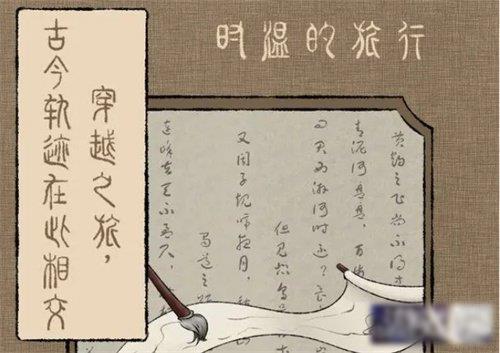 时温的旅行
穿越之旅，
古今轨迹在此相交
黄鹤之飞尚不得
青泥何盘盘，百步
问君西游何时还？畏
但见悲鸟
又闻子规啼夜月，愁
蜀道之
连峰去天不盈尺，